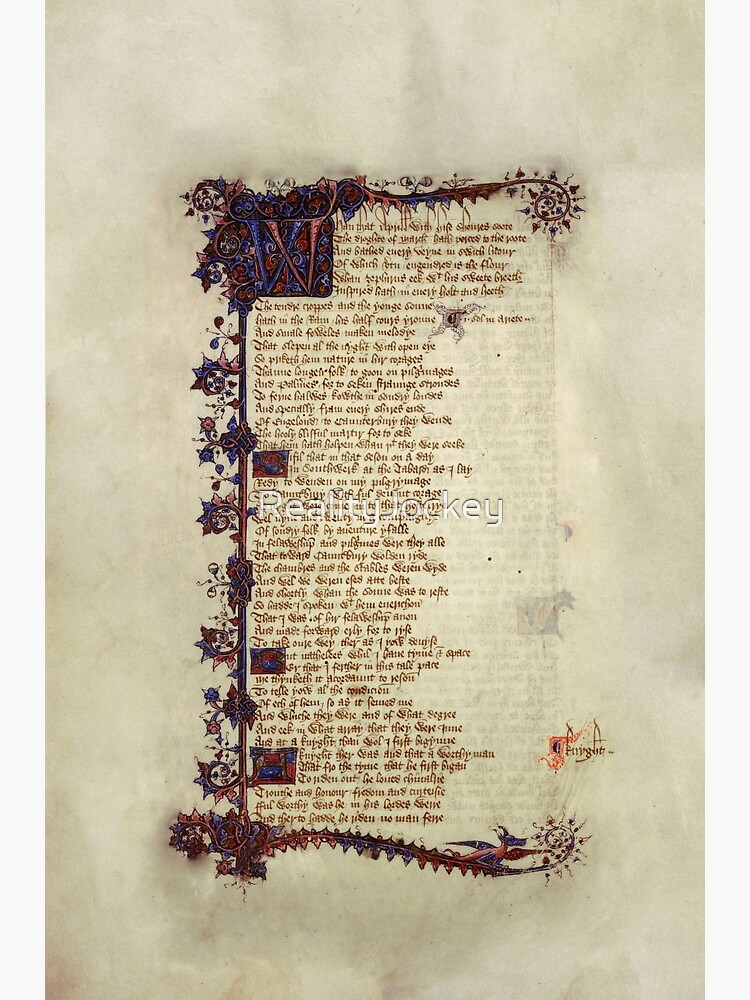 Whan that Aprill with hise shoures soote
The droghte of march hath perced to the roote
And bathed every veyne in swich licour
Of which vtu engendred is the flour
Whan zephirus eek wt his sweete breeth
Inspired hath in every holt and heeth
The tendre croppes and the yonge sonne
hath in the Ram his half cours yronne
.i. sol in ariete
And smale foweles maken melodye
That slepen al the nyght with open eye
So priketh hem nature in hir corages
Thanne longen folk to goon on pilgrimages
And Palmeres for to seken straunge strondes
To ferne halwes kowthe in sondry londes
And specially fram every shires ende
Of Engelond to Caunterbury they wende
The hooly blisful martir for to seke
That hem hath holpen whan þt they were seeke
Bifil that in that seson on a day
In Southwerk at the Tabard as I lay
Redy to wenden on my pilgrymage
To Caunterbury with ful deuout corage
RealityJockey
Wel nyne and twenty in a
Of sondry folk by auenture yfalle
In felaweship and pilgrimes were they alle
That toward Caunterbury wolden ryde
The chambres and the stables weren wyde
And wel we weren esed atte beste
And shortly whan the sonne was to reste
So hadde I spoken wt hem everichon
That I was of hir felaweship anon
And made forward erly for to ryse
To take oure wey ther as I yow deuyse
But nathelees whil I haue tyme & space
Er that I ferther in this tale pace
Me thynketh it acordaunt to reson
To telle yow al the condicion
Of ech of hem so as it semed me
And whiche they were and of what degree
And eek in what array that they were inne
And at a knyght than wol I first bigynne
Knyght
A knyght ther was and that a worthy man
That fro the tyme that he first bigan
To riden out he loued chiualrie
Trouthe and honour fredom and curteisie
fful worthy was he in his lordes werre
And ther to hadde he riden no man ferre